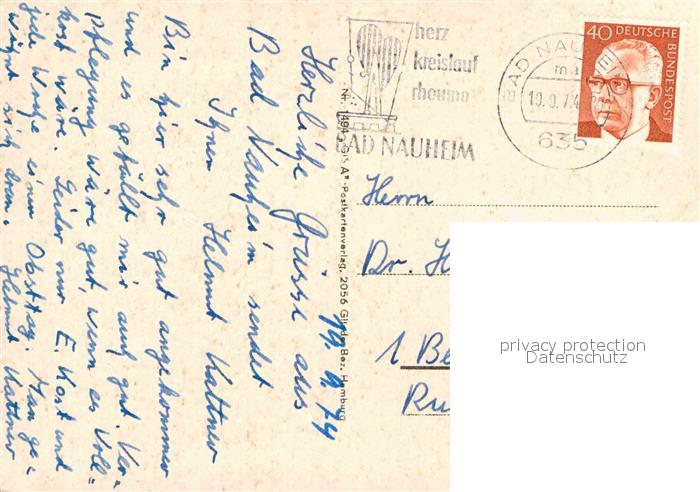 Herzliche Grüsse aus
Bad Nauheim sendet
Ihnen Helmut Kattner
19.9.74
Bin hier sehr gut angekommen
und es gefällt mir auch gut. Ver=
pflegung wäre gut, wenn es Voll=
kost wäre. Leider nur E. Kost und
jede Woche einen Obsttag. Man ge=
wöhnt sich dran.
Helmut Kattner
Nr. 1494 „GIS A"-Postkartenverlag, 2056 Glinde Bez. Hamburg
herz
kreislauf
rheuma
BAD NAUHEIM
BAD NAUHEIM
19.9.74
635
40 DEUTSCHE
BUNDESPOST
Herrn
Dr. H
1 Be
Ru
privacy protection
Datenschutz